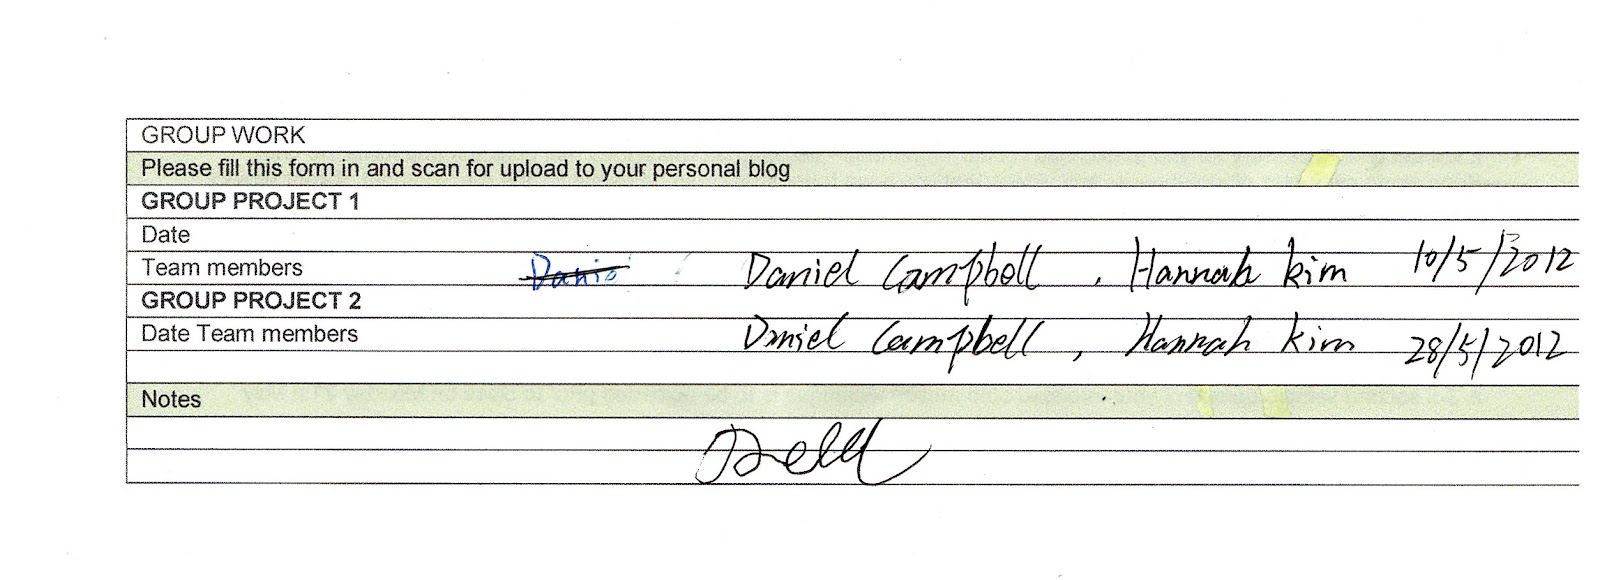 GROUP WORK
Please fill this form in and scan for upload to your personal blog
GROUP PROJECT 1
Date
Team members Danie Daniel Campbell , Hannah kim 10/5/2012
GROUP PROJECT 2
Date Team members Daniel Campbell , Hannah kim 28/5/2012
Notes